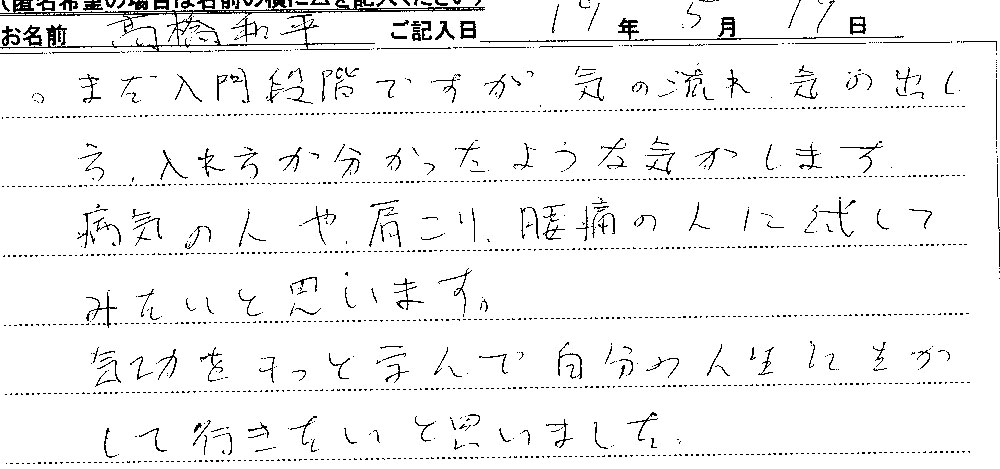 (匿名希望の場合は名前の横に△を記入ください)
お名前 高橋和平 ご記入日 19年5月19日
。まだ入門段階ですが、気の流れ、気の出し
方、入れ方が分かったような気がします。
病気の人や、肩こり、腰痛の人に試して
みたいと思います。
気功をもっと学んで自分の人生に生か
して行きたいと思いました。